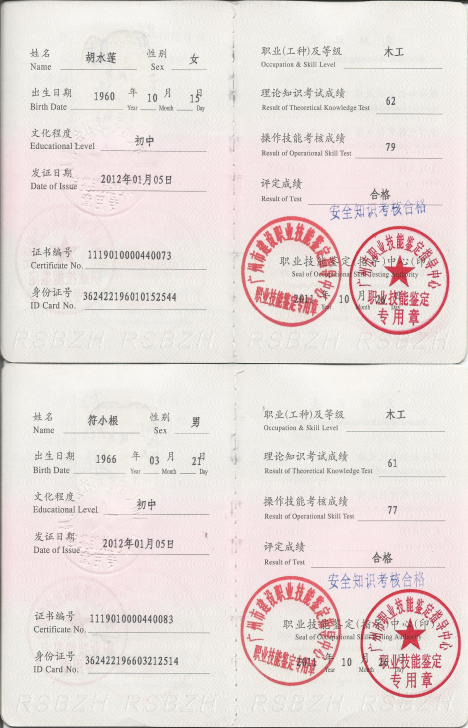 姓名 胡水莲 性别 女
Name Sex
出生日期 1960 年 10 月 15 日
Birth Date Year Month Day
文化程度 初中
Educational Level
发证日期 2012年01月05日
Date of Issue
证书编号 1119010000440073
Certificate No.
身份证号 362422196010152544
ID Card No.
职业(工种)及等级 木工
Occupation & Skill Level
理论知识考试成绩 62
Result of Theoretical Knowledge Test
操作技能考核成绩 79
Result of Operational Skill Test
评定成绩 合格
Result of Test
安全知识考核合格
广州市建设职业技能鉴定中心
职业技能鉴定专用章
职业技能鉴定(指导)中心(印)
Seal of Occupational Skill Testing Authority
2011 年 10 月 日
Year Month Day
广州市职业技能鉴定指导中心
职业技能鉴定
专用章
RSBZH RSBZH RSBZH
姓名 符小根 性别 男
Name Sex
出生日期 1966 年 03 月 21 日
Birth Date Year Month Day
文化程度 初中
Educational Level
发证日期 2012年01月05日
Date of Issue
证书编号 1119010000440083
Certificate No.
身份证号 362422196603212514
ID Card No.
职业(工种)及等级 木工
Occupation & Skill Level
理论知识考试成绩 61
Result of Theoretical Knowledge Test
操作技能考核成绩 77
Result of Operational Skill Test
评定成绩 合格
Result of Test
安全知识考核合格
广州市建设职业技能鉴定中心
职业技能鉴定专用章
职业技能鉴定(指导)中心(印)
Seal of Occupational Skill Testing Authority
2011 年 10 月 日
Year Month Day
广州市职业技能鉴定指导中心
职业技能鉴定
专用章
RSBZH RSBZH RSBZH